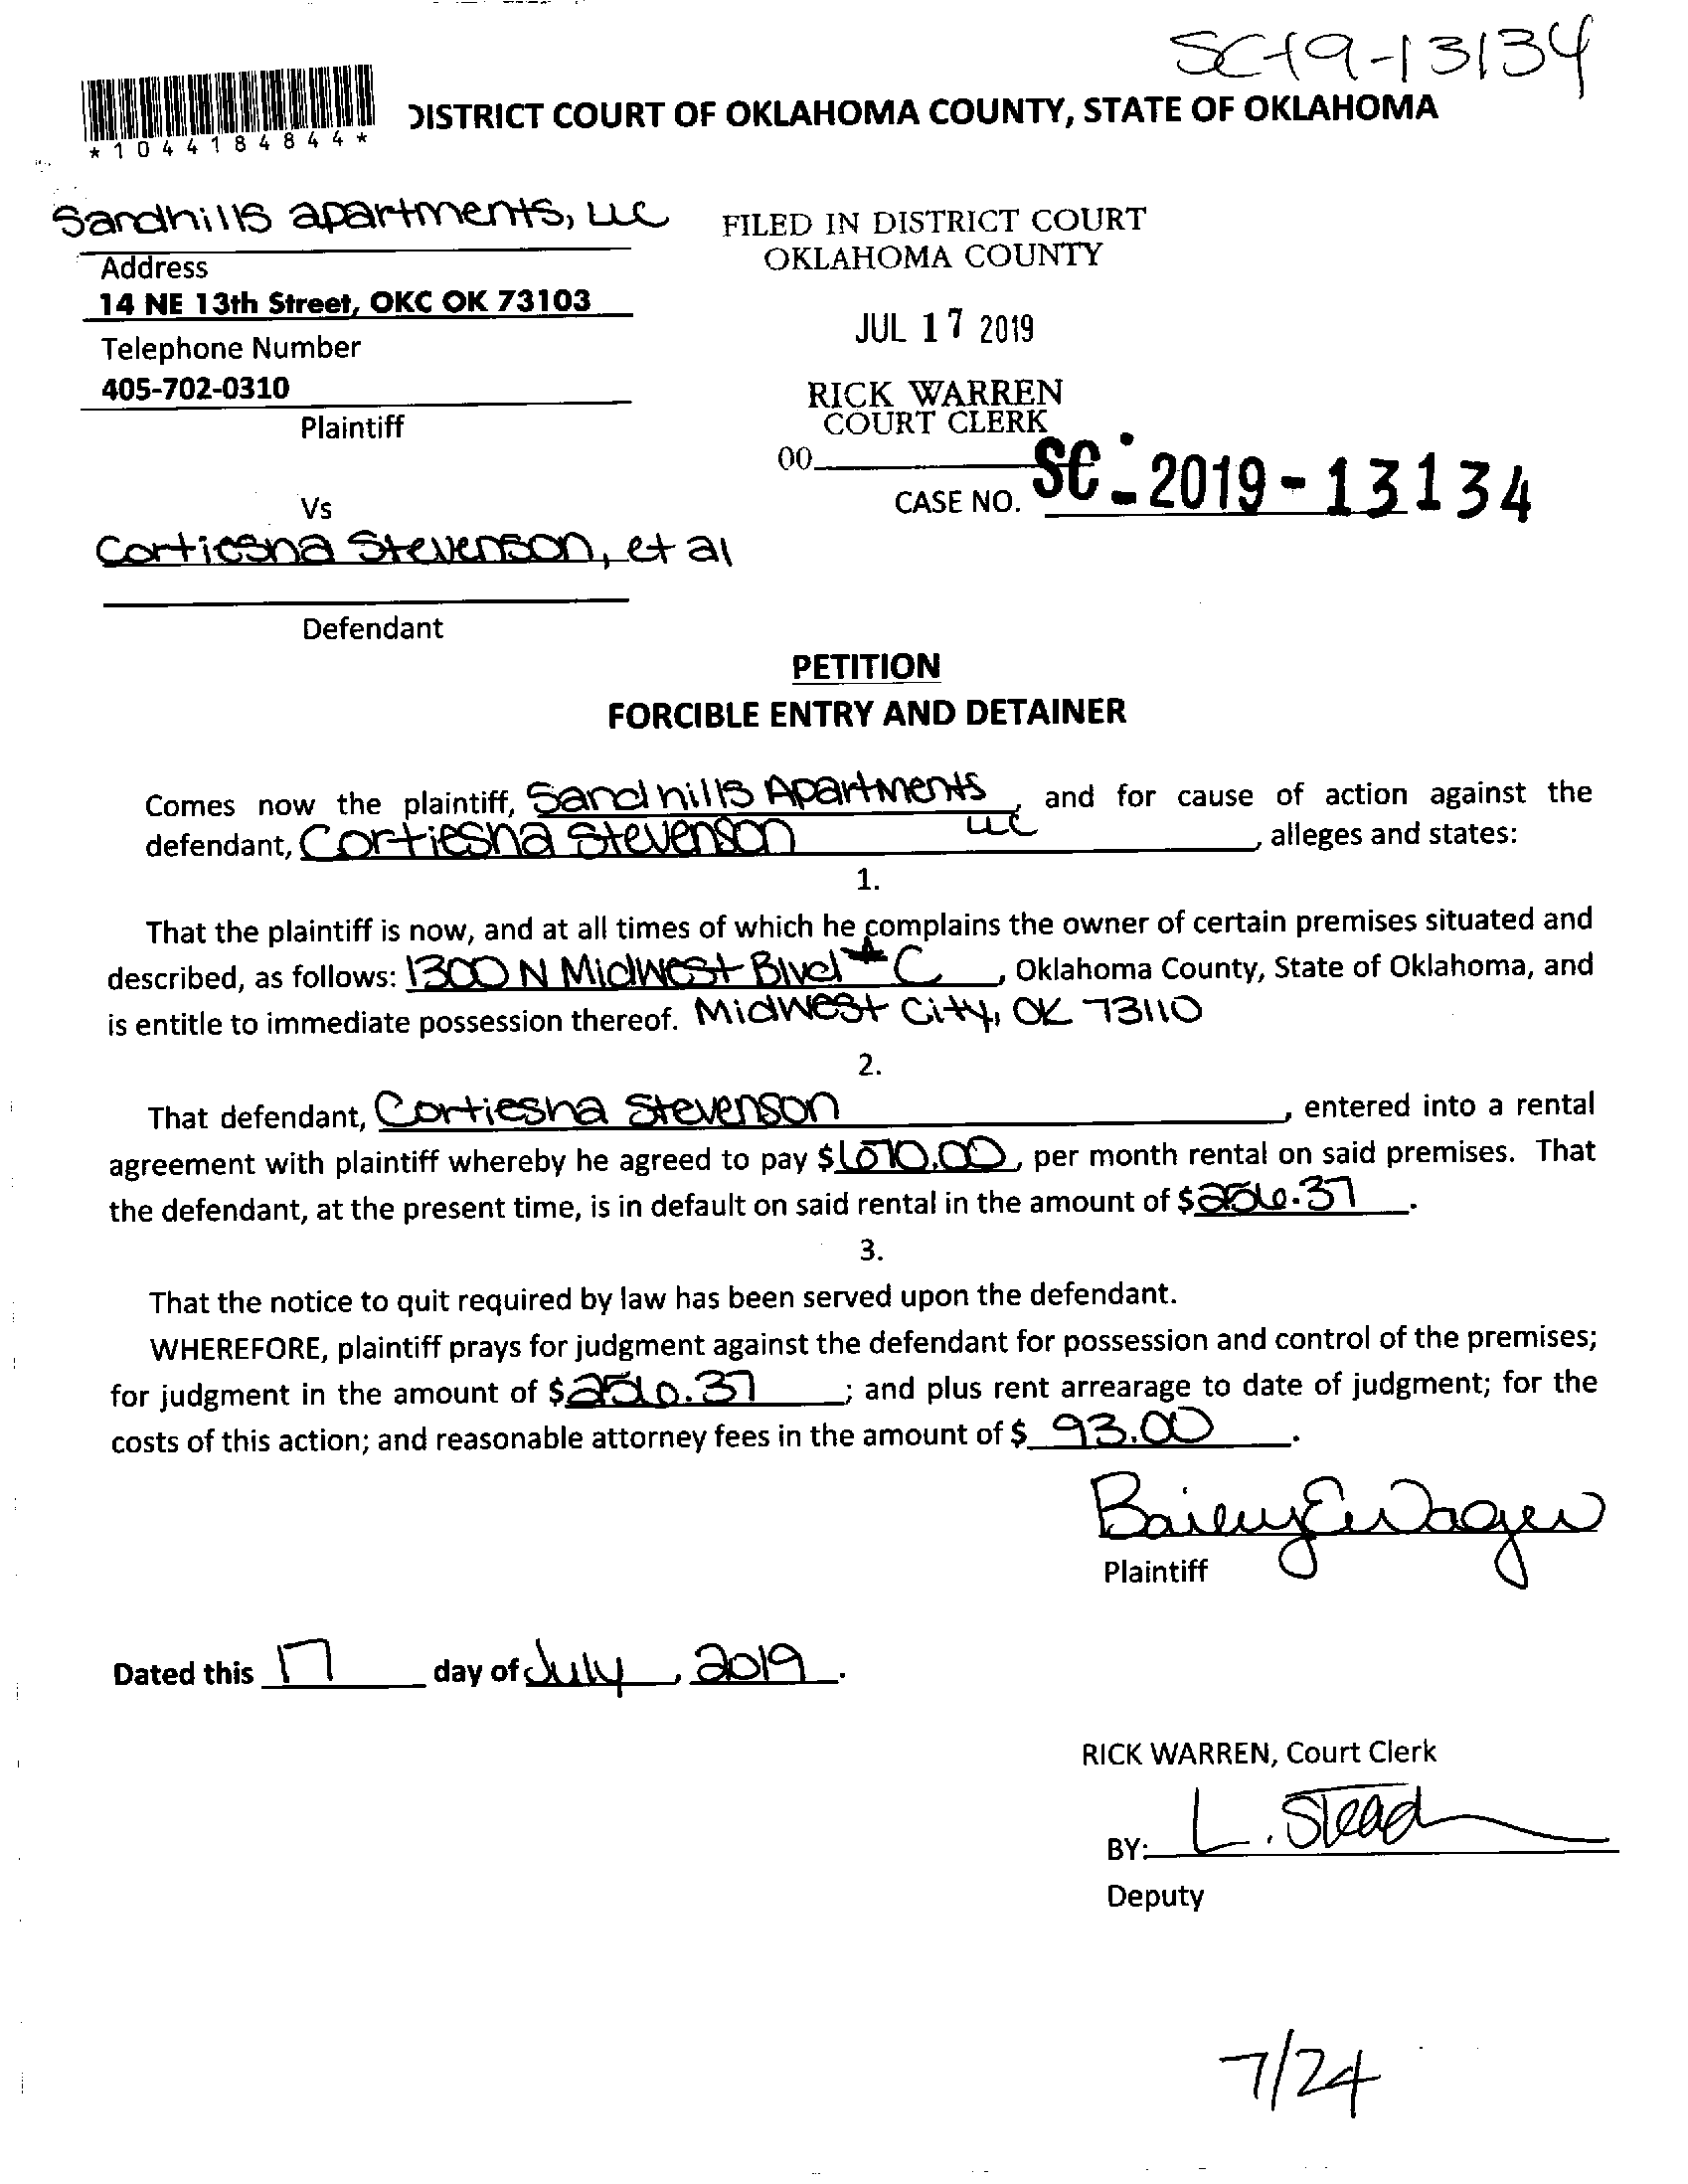 SC-19-13134
DISTRICT COURT OF OKLAHOMA COUNTY, STATE OF OKLAHOMA
*1044184844*
Sandhills apartments, LLC
FILED IN DISTRICT COURT
OKLAHOMA COUNTY
Address
14 NE 13th Street, OKC OK 73103
JUL 17 2019
Telephone Number
405-702-0310
RICK WARREN
COURT CLERK
Plaintiff
00
CASE NO. SC-2019-13134
Vs
Cortiesha Stevenson, et al
Defendant
PETITION
FORCIBLE ENTRY AND DETAINER
Comes now the plaintiff, Sandhills Apartments LLC, and for cause of action against the
defendant, Cortiesha Stevenson, alleges and states:
1.
That the plaintiff is now, and at all times of which he complains the owner of certain premises situated and
described, as follows: 1300 N Midwest Blvd #C, Oklahoma County, State of Oklahoma, and
is entitle to immediate possession thereof. Midwest City, OK 73110
2.
That defendant, Cortiesha Stevenson, entered into a rental
agreement with plaintiff whereby he agreed to pay $670.00, per month rental on said premises. That
the defendant, at the present time, is in default on said rental in the amount of $256.37.
3.
That the notice to quit required by law has been served upon the defendant.
WHEREFORE, plaintiff prays for judgment against the defendant for possession and control of the premises;
for judgment in the amount of $256.37; and plus rent arrearage to date of judgment; for the
costs of this action; and reasonable attorney fees in the amount of $ 93.00.
Plaintiff
Dated this 17 day of July, 2019.
RICK WARREN, Court Clerk
BY: L. Stead
Deputy
7/24